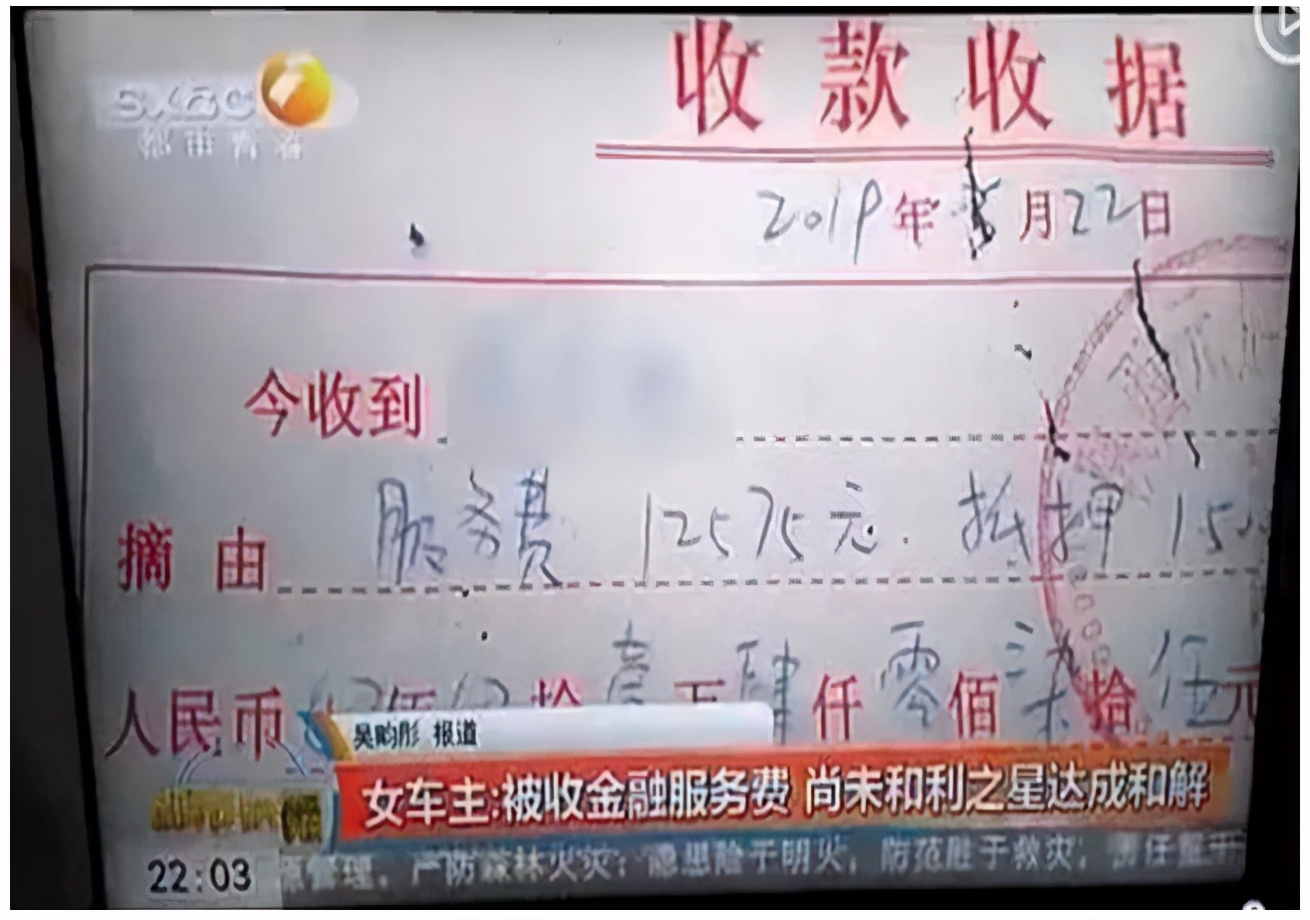 收款收据
2019年 月22日
今收到
摘由 服务费 12575元. 抵押 150
人民币 佰 拾 壹 万 肆 仟 零 佰 柒 拾 伍 元
吴昀彤 报道
女车主:被收金融服务费 尚未和利之星达成和解
22:03 管理，严防森林火灾；隐患险于明火，防范胜于救灾，责任重于